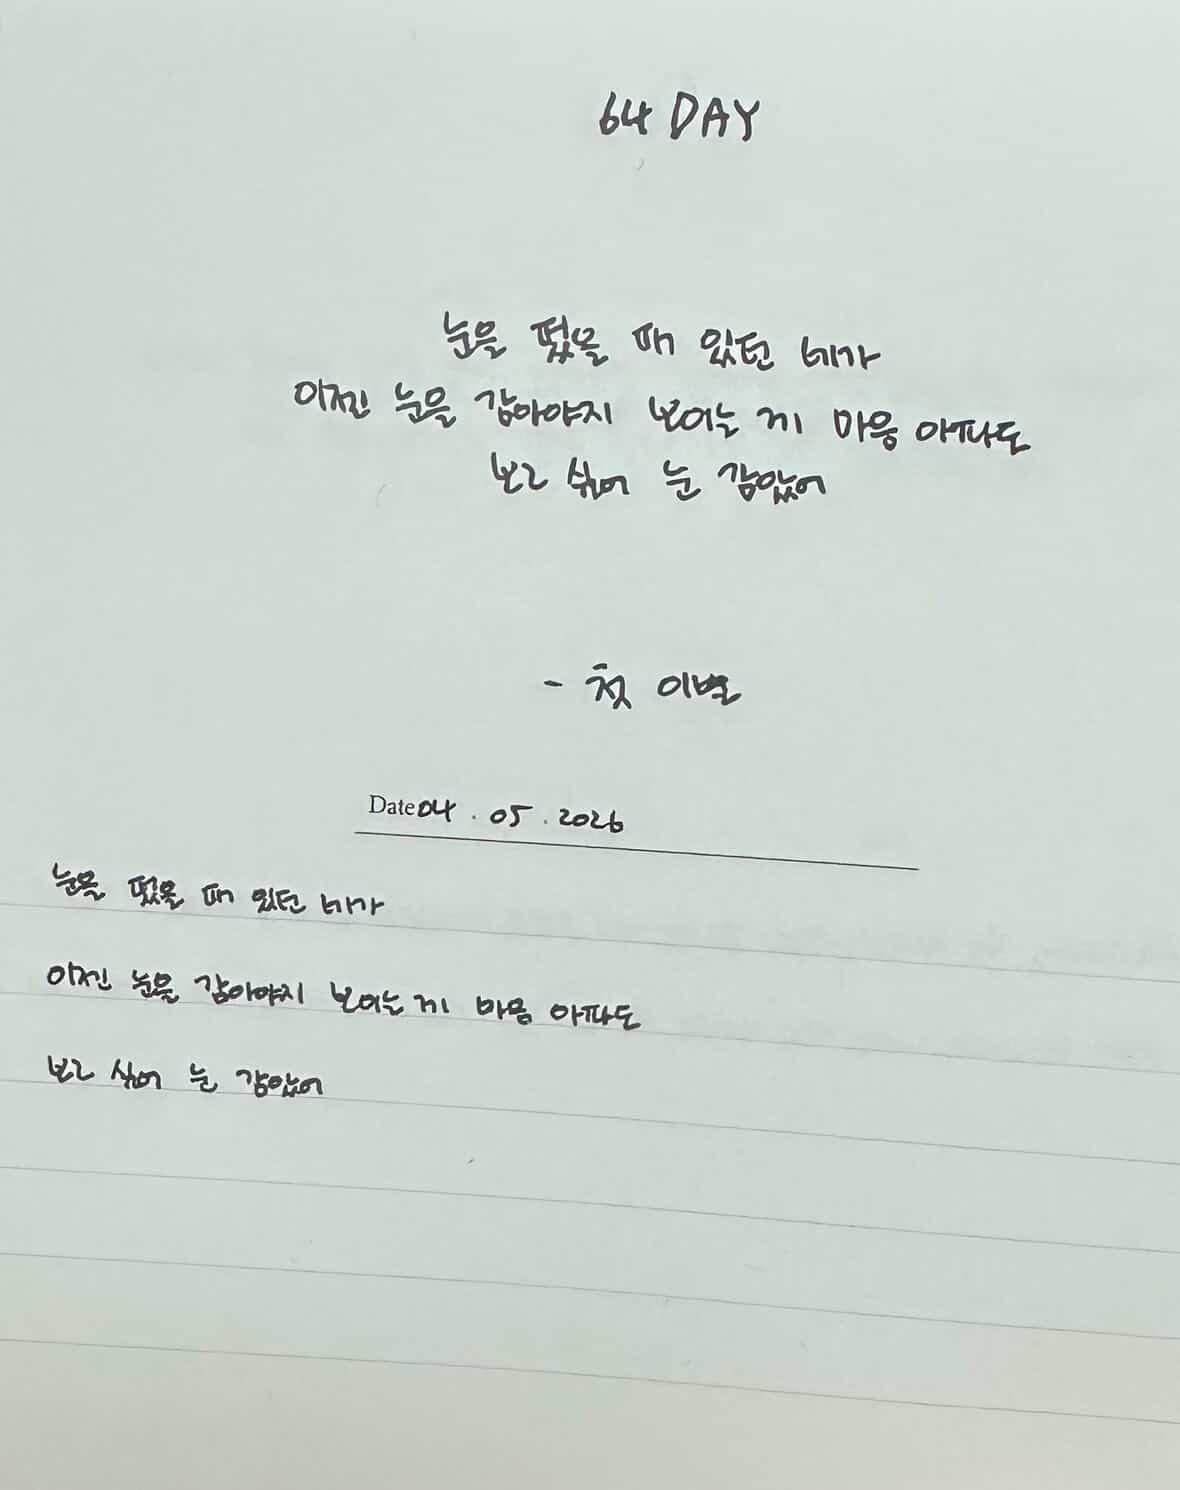 64 DAY
눈을 떴을 때 있던 네가
이젠 눈을 감아야지 보이는 게 마음 아파도
보고 싶어 눈 감았어
- 첫 이별
Date 04 . 05 . 2026
눈을 떴을 때 있던 네가
이젠 눈을 감아야지 보이는 게 마음 아파도
보고 싶어 눈 감았어